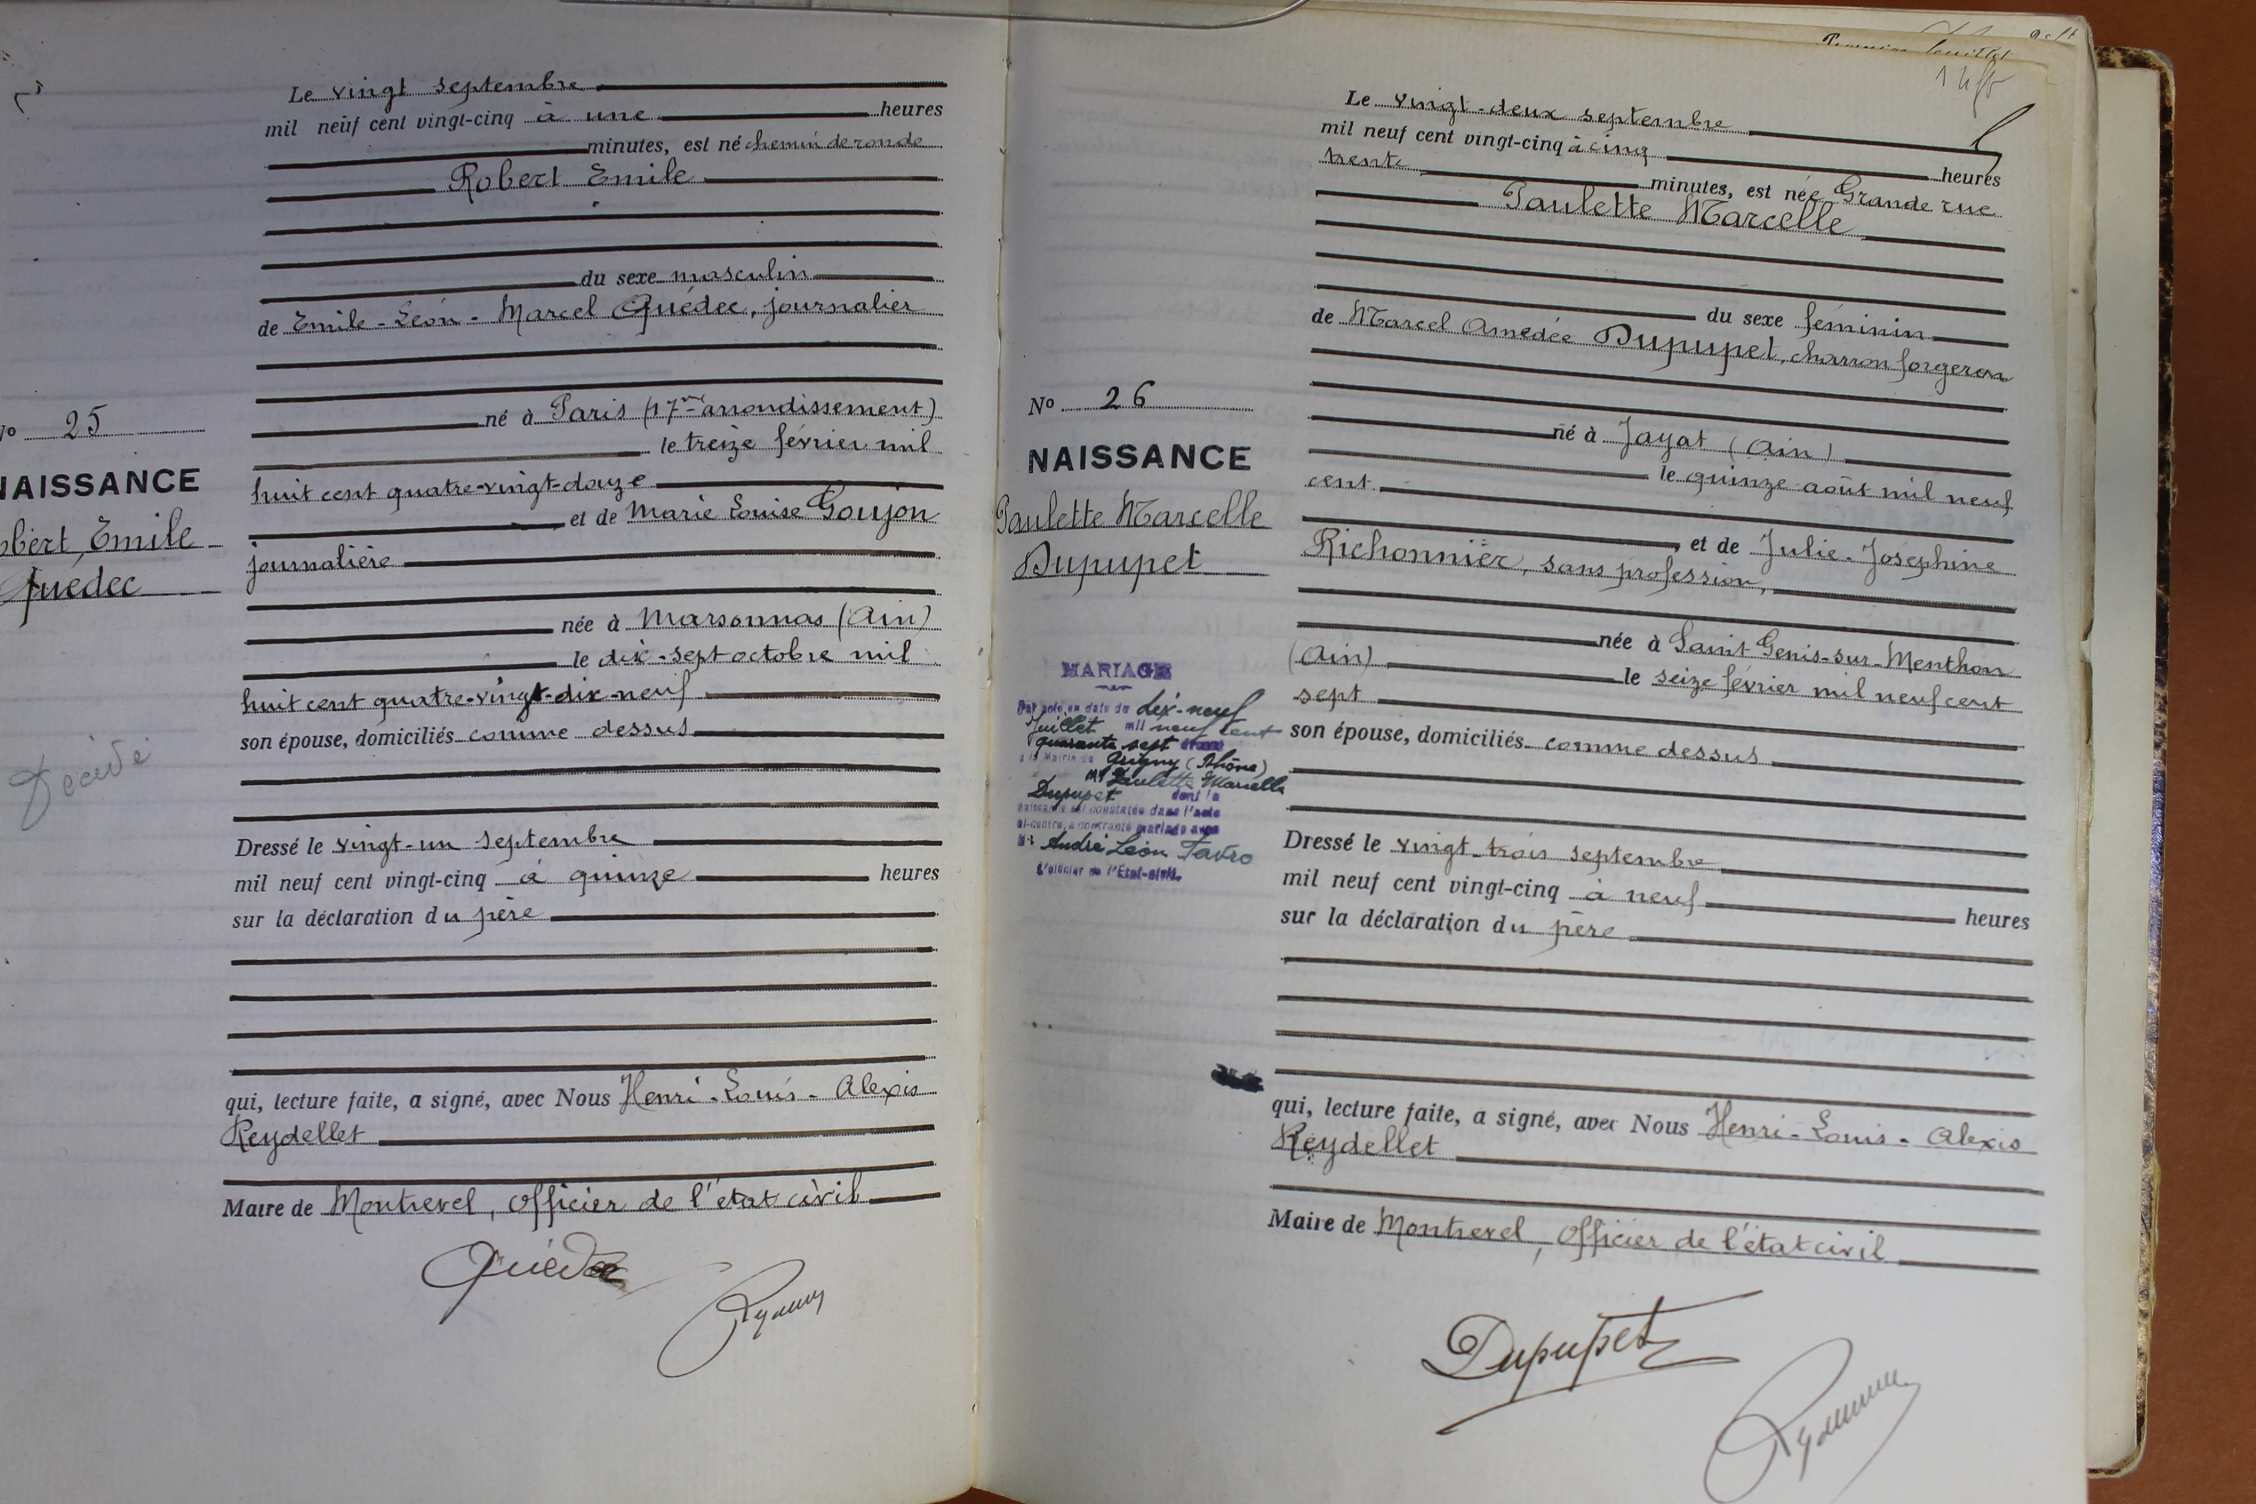 Le vingt septembre
mil neuf cent vingt-cinq à une heures
minutes, est né chemin de ronde
Robert Emile
du sexe masculin
de Emile-Léon-Marcel Quédec, journalier
né à Paris (17me arrondissement)
le treize février mil
huit cent quatre-vingt-douze
et de Marie Louise Goujon
journalière
née à Marsonnas (Ain)
le dix-sept octobre mil
huit cent quatre-vingt-dix-neuf
son épouse, domiciliés comme dessus
Dressé le vingt-un septembre
mil neuf cent vingt-cinq à quinze heures
sur la déclaration du père
qui, lecture faite, a signé, avec Nous Henri-Louis-Alexis
Reydellet
Maire de Montrevel, Officier de l'état civil
Quédec
No 25
NAISSANCE
Robert, Emile
Quédec
Décédé
Le vingt-deux septembre
mil neuf cent vingt-cinq à cinq heures
trente minutes, est née Grande rue
Paulette Marcelle
du sexe féminin
de Marcel Amédée Dupupet, charron forgeron
né à Jayat (Ain)
le quinze août mil neuf
cent
et de Julie-Joséphine
Richonnier, sans profession,
née à Saint Genis-sur-Menthon
(Ain) le seize février mil neuf cent
sept
son épouse, domiciliés comme dessus
Dressé le vingt-trois septembre
mil neuf cent vingt-cinq à neuf heures
sur la déclaration du père
qui, lecture faite, a signé, avec Nous Henri-Louis-Alexis
Reydellet
Maire de Montrevel, Officier de l'état civil
Dupupet
No 26
NAISSANCE
Paulette Marcelle
Dupupet
MARIAGE
Par acte en date du dix-neuf
Juillet mil neuf cent
quarante sept dressé
à la Mairie de Grigny (Rhône)
Paulette Marcelle
Dupupet dont la
naissance est constatée dans l'acte
ci-contre, a contracté mariage avec
Mr André Léon Favro
L'officier de l'Etat-civil.